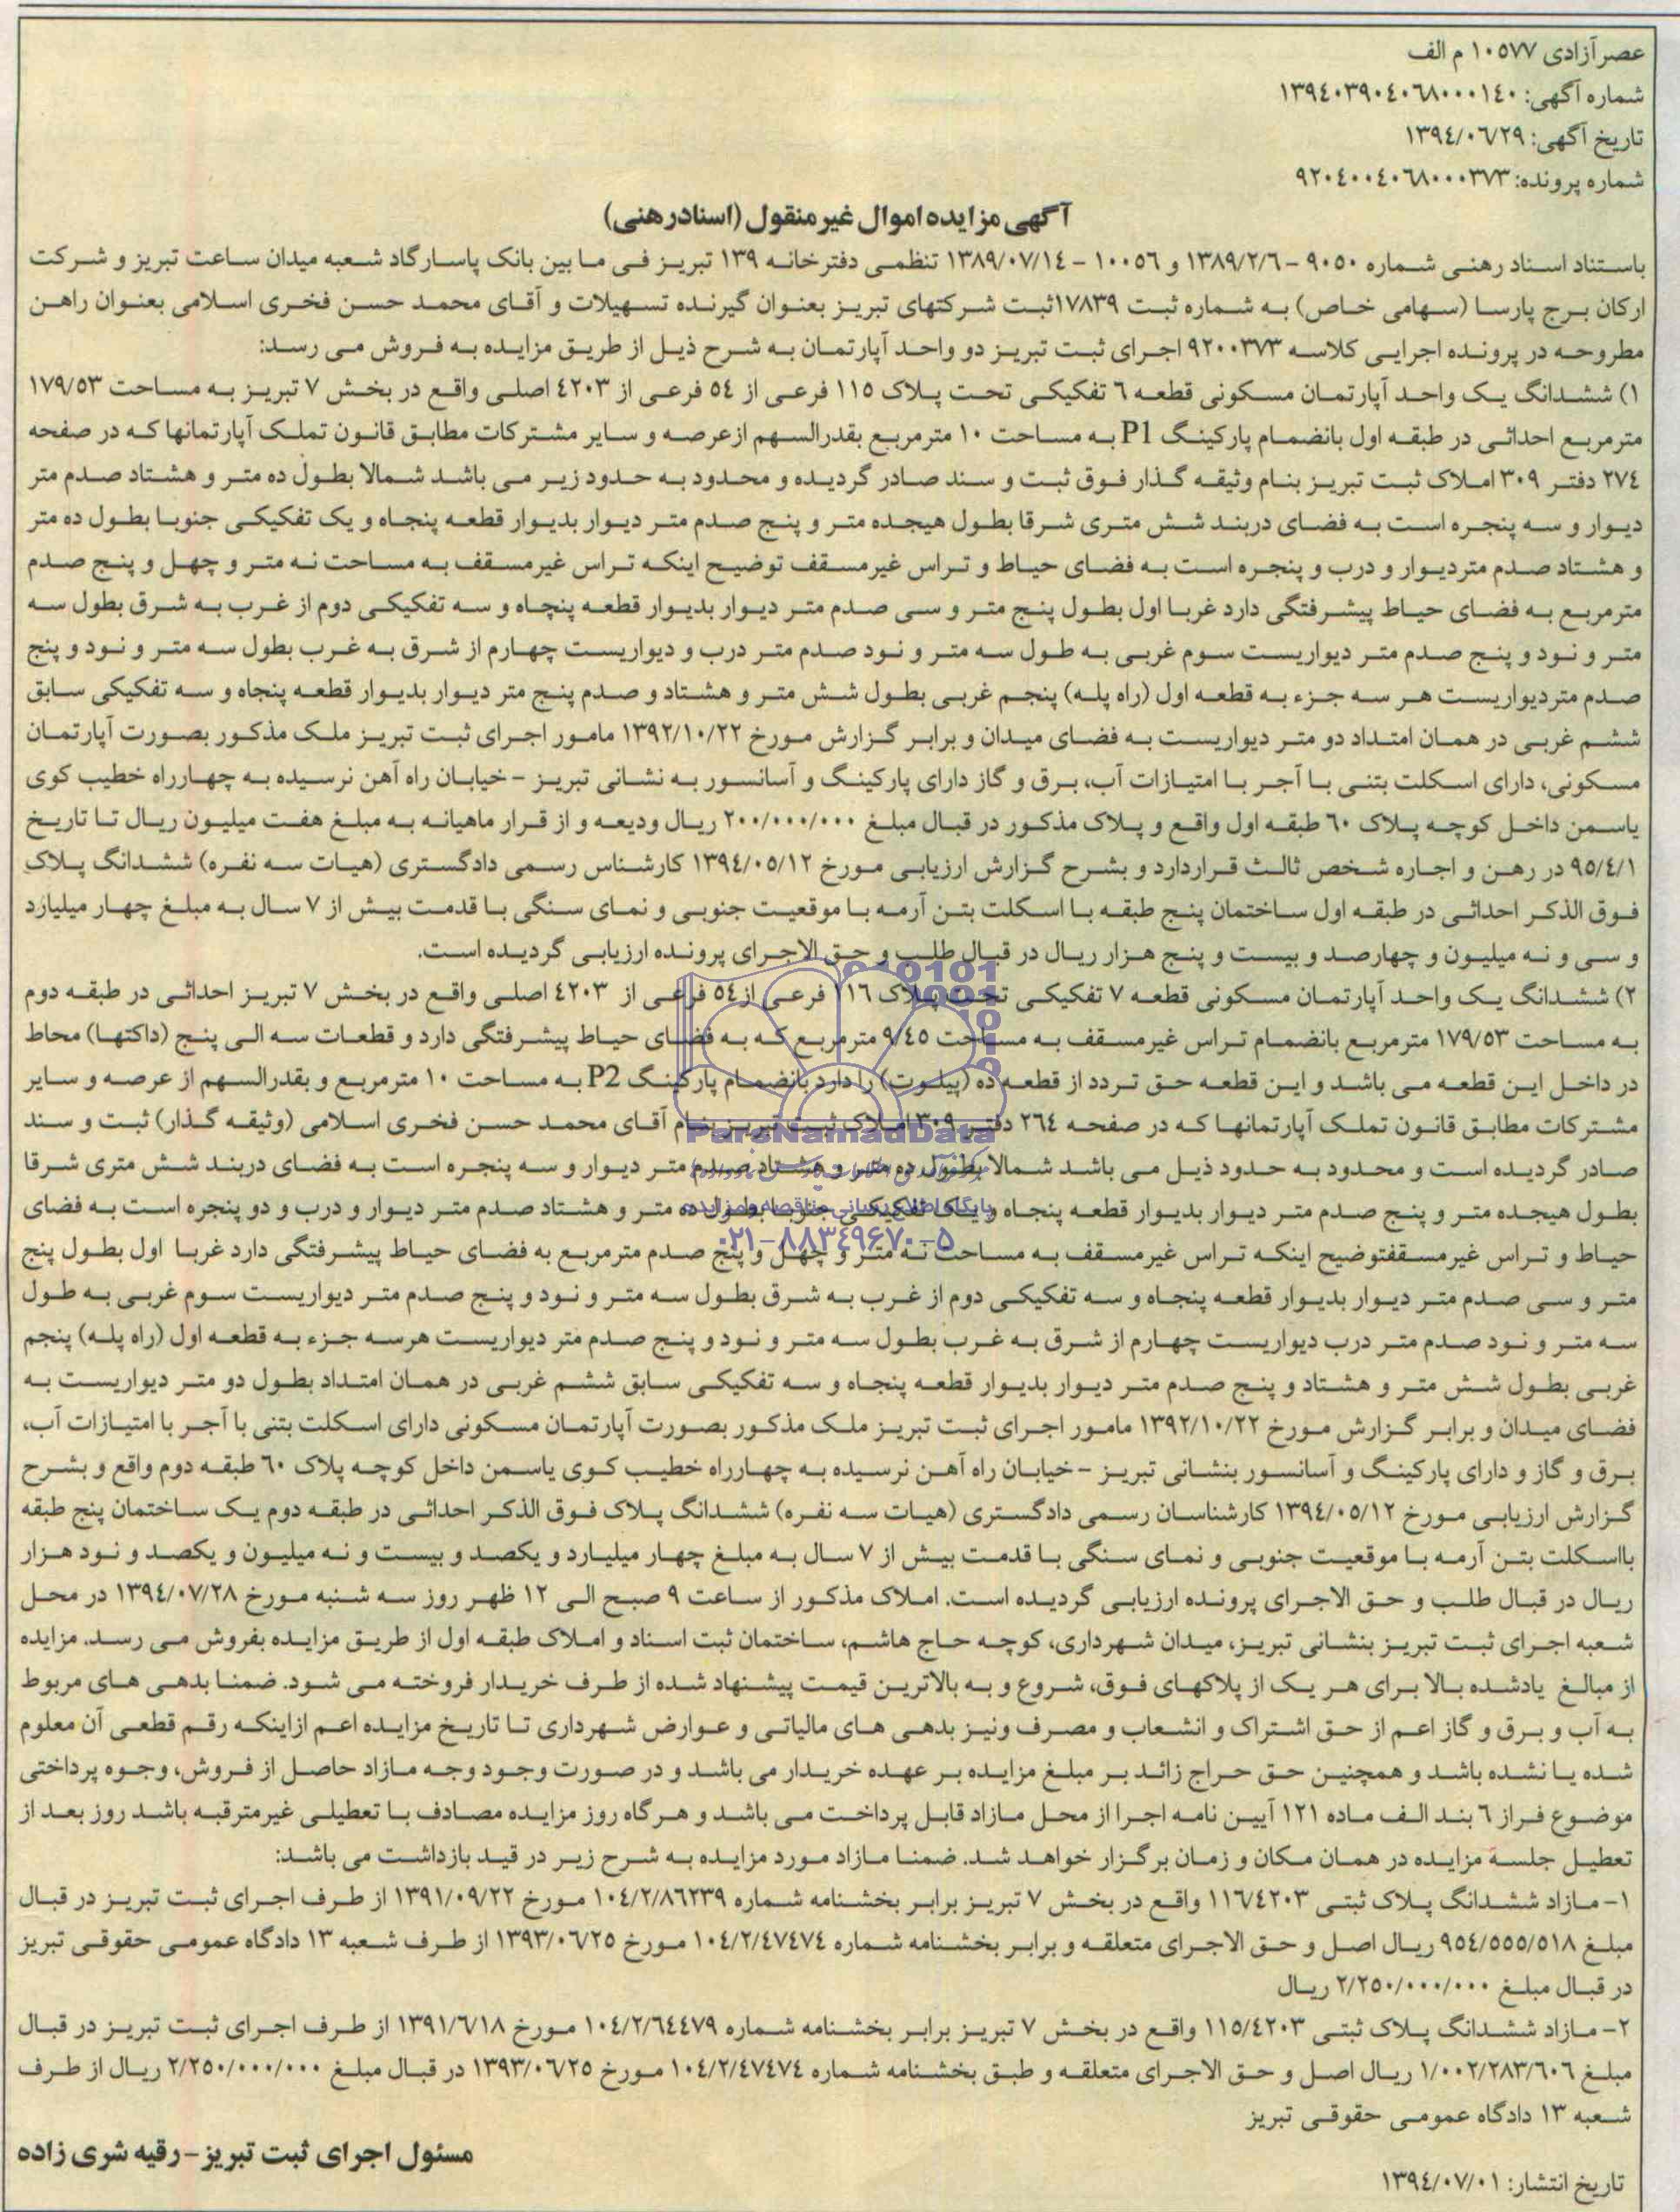 عصر آزادی ۱۰۵۷۷ م الف
شماره آگهی: ۱۳۹٤۰۳۹۰٤۰٦۸۰۰۰۱٤۰
تاریخ آگهی: ۱۳۹٤/۰٦/۲۹
شماره پرونده: ۹۲۰٤۰۰٤۰٦۸۰۰۰۳۷۳
آگهی مزایده اموال غیرمنقول (اسنادرهنی)
باستناد اسناد رهنی شماره ۹۰۵۰ - ۱۳۸۹/۲/٦ و ۱۰۰۵٦ - ۱۳۸۹/۰۷/۱٤ تنظمی دفترخانه ۱۳۹ تبریز فی ما بین بانک پاسارگاد شعبه میدان ساعت تبریز و شرکت
ارکان برج پارسا (سهامی خاص) به شماره ثبت ۱۷۸۳۹ثبت شرکتهای تبریز بعنوان گیرنده تسهیلات و آقای محمد حسن فخری اسلامی بعنوان راهن
مطروحه در پرونده اجرایی کلاسه ۹۲۰۰۳۷۳ اجرای ثبت تبریز دو واحد آپارتمان به شرح ذیل از طریق مزایده به فروش می رسد:
۱) ششدانگ یک واحد آپارتمان مسکونی قطعه ٦ تفکیکی تحت پلاک ۱۱۵ فرعی از ۵٤ فرعی از ٤۲۰۳ اصلی واقع در بخش ۷ تبریز به مساحت ۱۷۹/۵۳
مترمربع احداثی در طبقه اول بانضمام پارکینگ P1 به مساحت ۱۰ مترمربع بقدرالسهم ازعرصه و سایر مشترکات مطابق قانون تملک آپارتمانها که در صفحه
۲۷٤ دفتر ۳۰۹ املاک ثبت تبریز بنام وثیقه گذار فوق ثبت و سند صادر گردیده و محدود به حدود زیر می باشد شمالا بطول ده متر و هشتاد صدم متر
دیوار و سه پنجره است به فضای دربند شش متری شرقا بطول هیجده متر و پنج صدم متر دیوار بدیوار قطعه پنجاه و یک تفکیکی جنوبا بطول ده متر
و هشتاد صدم متردیوار و درب و پنجره است به فضای حیاط و تراس غیرمسقف توضیح اینکه تراس غیرمسقف به مساحت نه متر و چهل و پنج صدم
مترمربع به فضای حیاط پیشرفتگی دارد غربا اول بطول پنج متر و سی صدم متر دیوار بدیوار قطعه پنچاه و سه تفکیکی دوم از غرب به شرق بطول سه
متر و نود و پنج صدم متر دیواریست سوم غربی به طول سه متر و نود صدم متر درب و دیواریست چهارم از شرق به غرب بطول سه متر و نود و پنج
صدم متردیواریست هر سه جزء به قطعه اول (راه پله) پنجم غربی بطول شش متر و هشتاد و صدم پنج متر دیوار بدیوار قطعه پنجاه و سه تفکیکی سابق
ششم غربی در همان امتداد دو متر دیواریست به فضای میدان و برابر گزارش مورخ ۱۳۹۲/۱۰/۲۲ مامور اجرای ثبت تبریز ملک مذکور بصورت آپارتمان
مسکونی، دارای اسکلت بتنی با آجر با امتیازات آب، برق و گاز دارای پارکینگ و آسانسور به نشانی تبریز - خیابان راه آهن نرسیده به چهارراه خطیب کوی
یاسمن داخل کوچه پلاک ٦۰ طبقه اول واقع و پلاک مذکور در قبال مبلغ ۲۰۰/۰۰۰/۰۰۰ ریال ودیعه و از قرار ماهیانه به مبلغ هفت میلیون ریال تا تاریخ
۹۵/٤/۱ در رهن و اجاره شخص ثالث قراردارد و بشرح گزارش ارزیابی مورخ ۱۳۹٤/۰۵/۱۲ کارشناس رسمی دادگستری (هیات سه نفره) ششدانگ پلاک
فوق الذکر احداثی در طبقه اول ساختمان پنج طبقه با اسکلت بتن آرمه با موقعیت جنوبی و نمای سنگی با قدمت بیش از ۷ سال به مبلغ چهار میلیارد
و سی و نه میلیون و چهارصد و بیست و پنج هزار ریال در قبال طلب و حق الاجرای پرونده ارزیابی گردیده است.
۲) ششدانگ یک واحد آپارتمان مسکونی قطعه ۷ تفکیکی تحت پلاک ۱۱٦ فرعی از۵٤ فرعی از ٤۲۰۳ اصلی واقع در بخش ۷ تبریز احداثی در طبقه دوم
به مساحت ۱۷۹/۵۳ مترمربع بانضمام تراس غیرمسقف به مساحت ۹/٤۵ مترمربع که به فضای حیاط پیشرفتگی دارد و قطعات سه الی پنج (داکتها) محاط
در داخل این قطعه می باشد و این قطعه حق تردد از قطعه ده (پیلوت) را دارد بانضمام پارکینگ P2 به مساحت ۱۰ مترمربع و بقدرالسهم از عرصه و سایر
مشترکات مطابق قانون تملک آپارتمانها که در صفحه ۲٦٤ دفتر ۳۰۹ املاک ثبت تبریز بنام آقای محمد حسن فخری اسلامی (وثیقه گذار) ثبت و سند
صادر گردیده است و محدود به حدود ذیل می باشد شمالا بطول ده متر و هشتاد صدم متر دیوار و سه پنجره است به فضای دربند شش متری شرقا
بطول هیجده متر و پنج صدم متر دیوار بدیوار قطعه پنجاه و یک تفکیکی جنوبا بطول ده متر و هشتاد صدم متر دیوار و درب و دو پنجره است به فضای
حیاط و تراس غیرمسقفتوضیح اینکه تراس غیرمسقف به مساحت نه متر و چهل و پنج صدم مترمربع به فضای حیاط پیشرفتگی دارد غربا اول بطول پنج
متر و سی صدم متر دیوار بدیوار قطعه پنجاه و سه تفکیکی دوم از غرب به شرق بطول سه متر و نود و پنج صدم متر دیواریست سوم غربی به طول
سه متر و نود صدم متر درب دیواریست چهارم از شرق به غرب بطول سه متر و نود و پنج صدم متر دیواریست هرسه جزء به قطعه اول (راه پله) پنجم
غربی بطول شش متر و هشتاد و پنج صدم متر دیوار بدیوار قطعه پنجاه و سه تفکیکی سابق ششم غربی در همان امتداد بطول دو متر دیواریست به
فضای میدان و برابر گزارش مورخ ۱۳۹۲/۱۰/۲۲ مامور اجرای ثبت تبریز ملک مذکور بصورت آپارتمان مسکونی دارای اسکلت بتنی با آجر با امتیازات آب،
برق و گاز و دارای پارکینگ و آسانسور بنشانی تبریز - خیابان راه آهن نرسیده به چهارراه خطیب کوی یاسمن داخل کوچه پلاک ٦۰ طبقه دوم واقع و بشرح
گزارش ارزیابی مورخ ۱۳۹٤/۰۵/۱۲ کارشناسان رسمی دادگستری (هیات سه نفره) ششدانگ پلاک فوق الذکر احداثی در طبقه دوم یک ساختمان پنج طبقه
بااسکلت بتن آرمه با موقعیت جنوبی و نمای سنگی با قدمت بیش از ۷ سال به مبلغ چهار میلیارد و یکصد و بیست و نه میلیون و یکصد و نود هزار
ریال در قبال طلب و حق الاجرای پرونده ارزیابی گردیده است. املاک مذکور از ساعت ۹ صبح الی ۱۲ ظهر روز سه شنبه مورخ ۱۳۹٤/۰۷/۲۸ در محل
شعبه اجرای ثبت تبریز بنشانی تبریز، میدان شهرداری، کوچه حاج هاشم، ساختمان ثبت اسناد و املاک طبقه اول از طریق مزایده بفروش می رسد. مزایده
از مبالغ یادشده بالا برای هر یک از پلاکهای فوق، شروع و به بالاترین قیمت پیشنهاد شده از طرف خریدار فروخته می شود. ضمنا بدهی های مربوط
به آب و برق و گاز اعم از حق اشتراک و انشعاب و مصرف ونیز بدهی های مالیاتی و عوارض شهرداری تا تاریخ مزایده اعم ازاینکه رقم قطعی آن معلوم
شده یا نشده باشد و همچنین حق حراج زائد بر مبلغ مزایده بر عهده خریدار می باشد و در صورت وجود وجه مازاد حاصل از فروش، وجوه پرداختی
موضوع فراز ٦ بند الف ماده ۱۲۱ آیین نامه اجرا از محل مازاد قابل پرداخت می باشد و هرگاه روز مزایده مصادف با تعطیلی غیرمترقبه باشد روز بعد از
تعطیل جلسه مزایده در همان مکان و زمان برگزار خواهد شد. ضمنا مازاد مورد مزایده به شرح زیر در قید بازداشت می باشد:
۱- مازاد ششدانگ پلاک ثبتی ۱۱٦/٤۲۰۳ واقع در بخش ۷ تبریز برابر بخشنامه شماره ۱۰٤/۲/۸٦۲۳۹ مورخ ۱۳۹۱/۰۹/۲۲ از طرف اجرای ثبت تبریز در قبال
مبلغ ۹۵٤/۵۵۵/۵۱۸ ریال اصل و حق الاجرای متعلقه و برابر بخشنامه شماره ۱۰٤/۲/٤۷٤۷٤ مورخ ۱۳۹۳/۰٦/۲۵ از طرف شعبه ۱۳ دادگاه عمومی حقوقی تبریز
در قبال مبلغ ۲/۲۵۰/۰۰۰/۰۰۰ ریال
۲- مازاد ششدانگ پلاک ثبتی ۱۱۵/٤۲۰۳ واقع در بخش ۷ تبریز برابر بخشنامه شماره ۱۰٤/۲/٦٤٤۷۹ مورخ ۱۳۹۱/٦/۱۸ از طرف اجرای ثبت تبریز در قبال
مبلغ ۱/۰۰۲/۲۸۳/٦۰٦ ریال اصل و حق الاجرای متعلقه و طبق بخشنامه شماره ۱۰٤/۲/٤۷٤۷٤ مورخ ۱۳۹۳/۰٦/۲۵ در قبال مبلغ ۲/۲۵۰/۰۰۰/۰۰۰ ریال از طرف
شعبه ۱۳ دادگاه عمومی حقوقی تبریز
مسئول اجرای ثبت تبریز - رقیه شری زاده
تاریخ انتشار: ۱۳۹٤/۰۷/۰۱
ParsNamadData
پایگاه اطلاع رسانی مناقصه و مزایده
۰۲۱-۸۸۳٤۹۶۷۰-۵